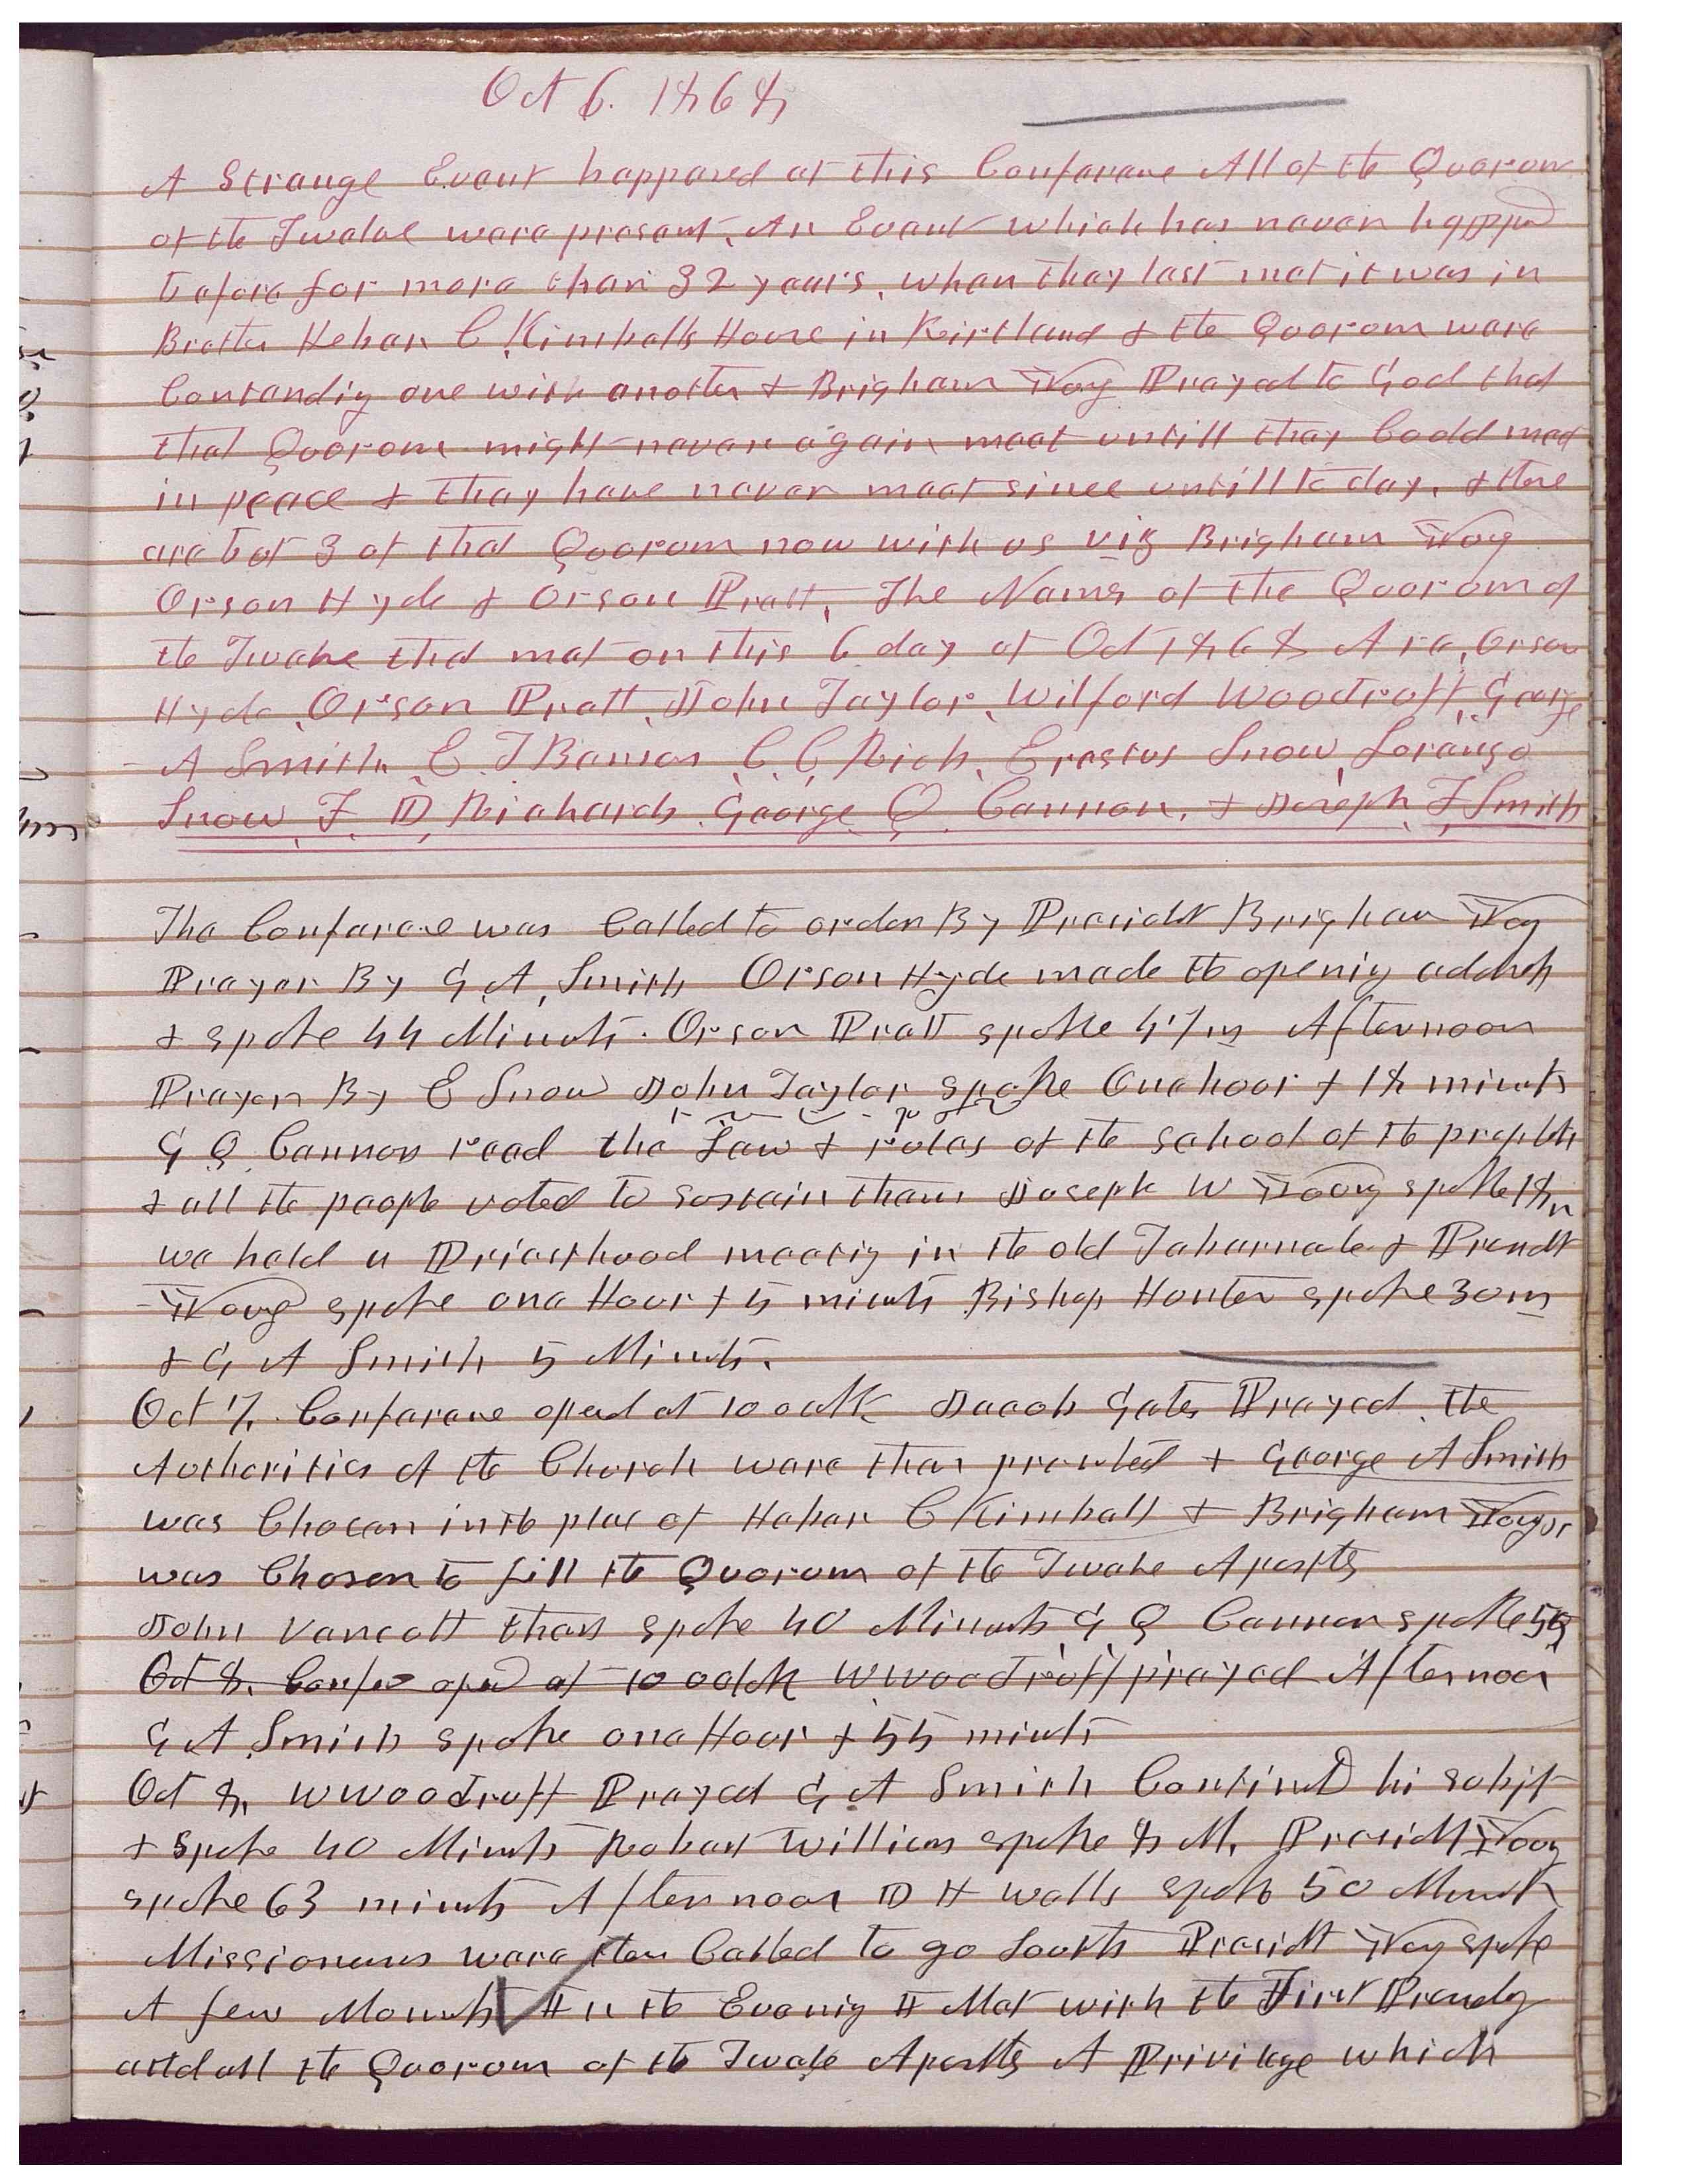 Oct 6. 1868
A Strange Event happened at this Conferance All of the Quorum
of the Twelve were present. An Event which has never happed
before for more than 32 years. when they last met it was in
Brother Heber C Kimballs House in Kirtland & the Quorum were
Contending one with another & Brigham Young Prayed to God that
that Quorom might never again meet untill they Could meet
in peace & they have never meet since untill to day. & there
are but 3 of that Quorom now with us viz Brigham Young
Orson Hyde & Orson Pratt. The Names of the Quorom of
the Twelve that met on this 6 day of Oct 1868 Are, Orson
Hyde, Orson Pratt, John Taylor, Wilford Woodruff, George
A Smith, E. T Benson, C, C, Rich, Erastus Snow, Loranzo
Snow, F. D, Richards, George Q. Cannon, & Joseph, F, Smith
The Conferance was Called to order By Presidt Brigham Young
Prayer By G, A, Smith Orson Hyde made the opening address
& spoke 44 Minuts. Orson Pratt spoke 47 m Afternoon
Prayer By E Snow John Taylor spoke One hour & 18 minuts
G Q Cannon read the Law & rules of the school of the prophets
& all the people voted to sustain them Joseph W Young spoke 18 m
we held a Priesthood meeting in the old Tabernacle & Presidt
Young spoke one Hour & 5 minuts Bishop Hunter spoke 30 m
& G A Smith 5 Minuts.
Oct 7. Conferance opend at 10 oclk Jacob Gates Prayed. the
Authorities of the Church were then presented & George A Smith
was Chosen in the place of Heber C Kimball & Brigham Young jr
was Chosen to fill the Quorum of the Twelve Apostles
John Vancott then spoke 40 Minuts, G Q Cannon spoke
Oct 8. Confer opend at 10 oclok W Woodruff prayed Afternoon
G A Smith spoke one Hour & 55 minuts
Oct 8, W Woodruff Prayed G, A Smith Continued his subjt
& spoke 40 Minuts Robert William spoke 8 M. Presidt Young
spoke 63 minuts Afternoon D H Wells spoke 50 Minuts
Missionaries were then Called to go South Presidt Young spoke
A few Moments In the Evening I Met with the First Presidency
and all the Quorom of the Twelve Apostles A Privilege which